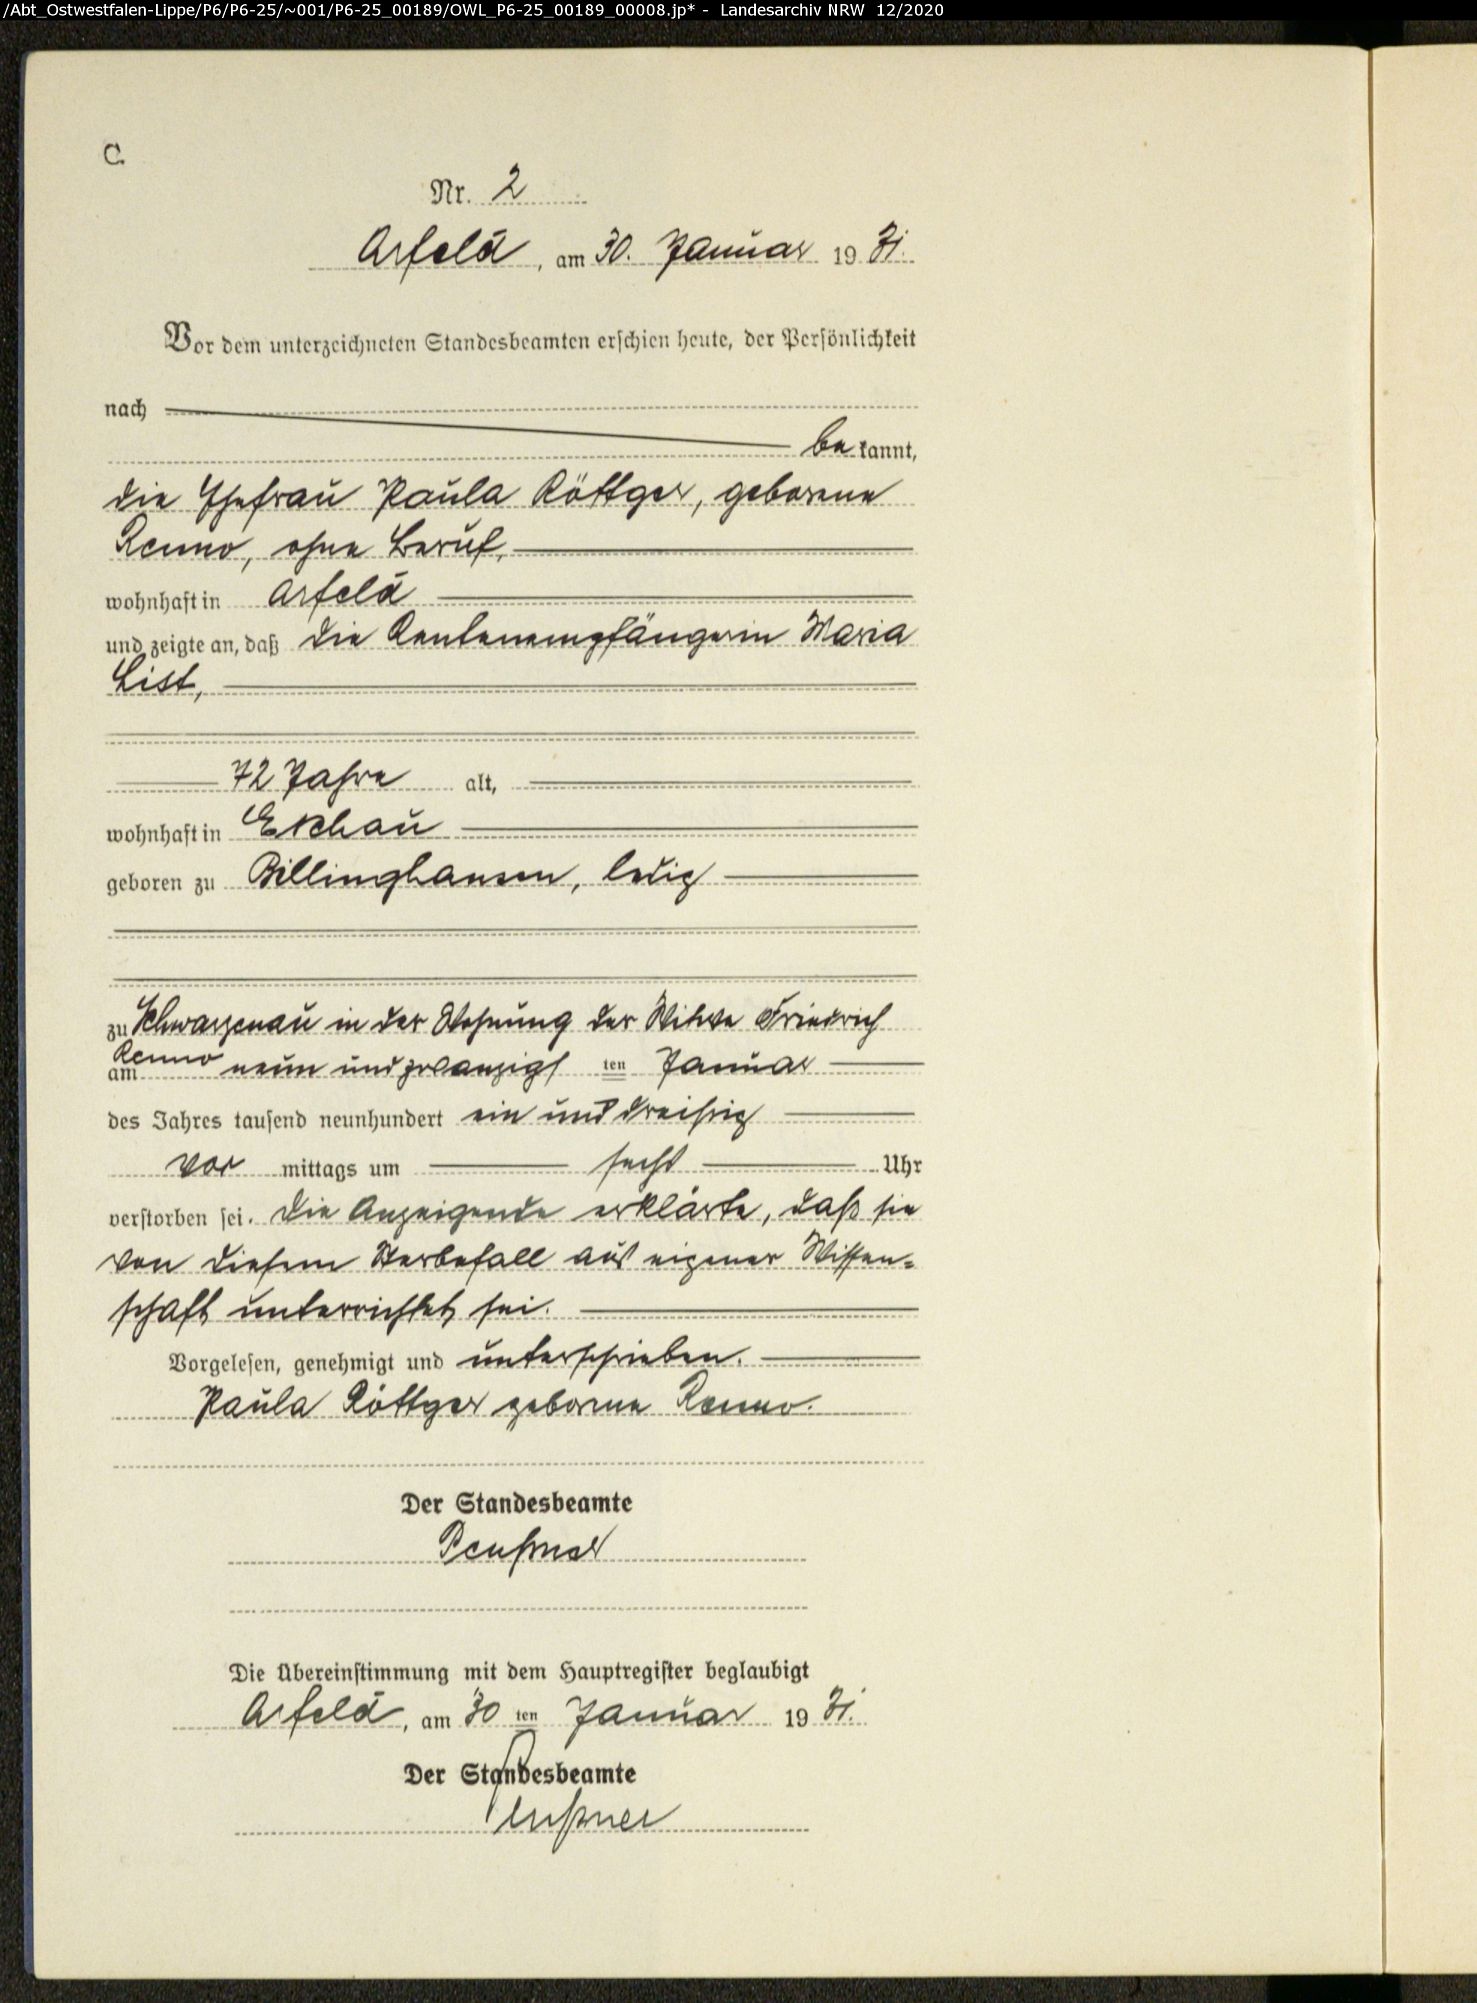 /Abt_Ostwestfalen-Lippe/P6/P6-25/~001/P6-25_00189/OWL_P6-25_00189_00008.jp* - Landesarchiv NRW 12/2020
C.
Nr. 2
Arfeld, am 30. Januar 1931.
Vor dem unterzeichneten Standesbeamten erschien heute, der Persönlichkeit
nach
bekannt,
die Ehefrau Paula Röttger, geborene
Renno, ohne Beruf,
wohnhaft in Arfeld
und zeigte an, daß die Rentenempfängerin Maria
List,
72 Jahre alt,
wohnhaft in Eschau
geboren zu Billinghausen, ledig
zu Schwarzenau in der Wohnung der Witwe Friedrich
Renno
am neun und zwanzigsten Januar
des Jahres tausend neunhundert ein und dreißig
vor mittags um sechs Uhr
verstorben sei. Die Anzeigende erklärte, daß sie
von diesem Sterbefall aus eigener Wissen-
schaft unterrichtet sei.
Vorgelesen, genehmigt und unterschrieben.
Paula Röttger geborene Renno.
Der Standesbeamte
Die Übereinstimmung mit dem Hauptregister beglaubigt
Arfeld, am 30 ten Januar 1931.
Der Standesbeamte